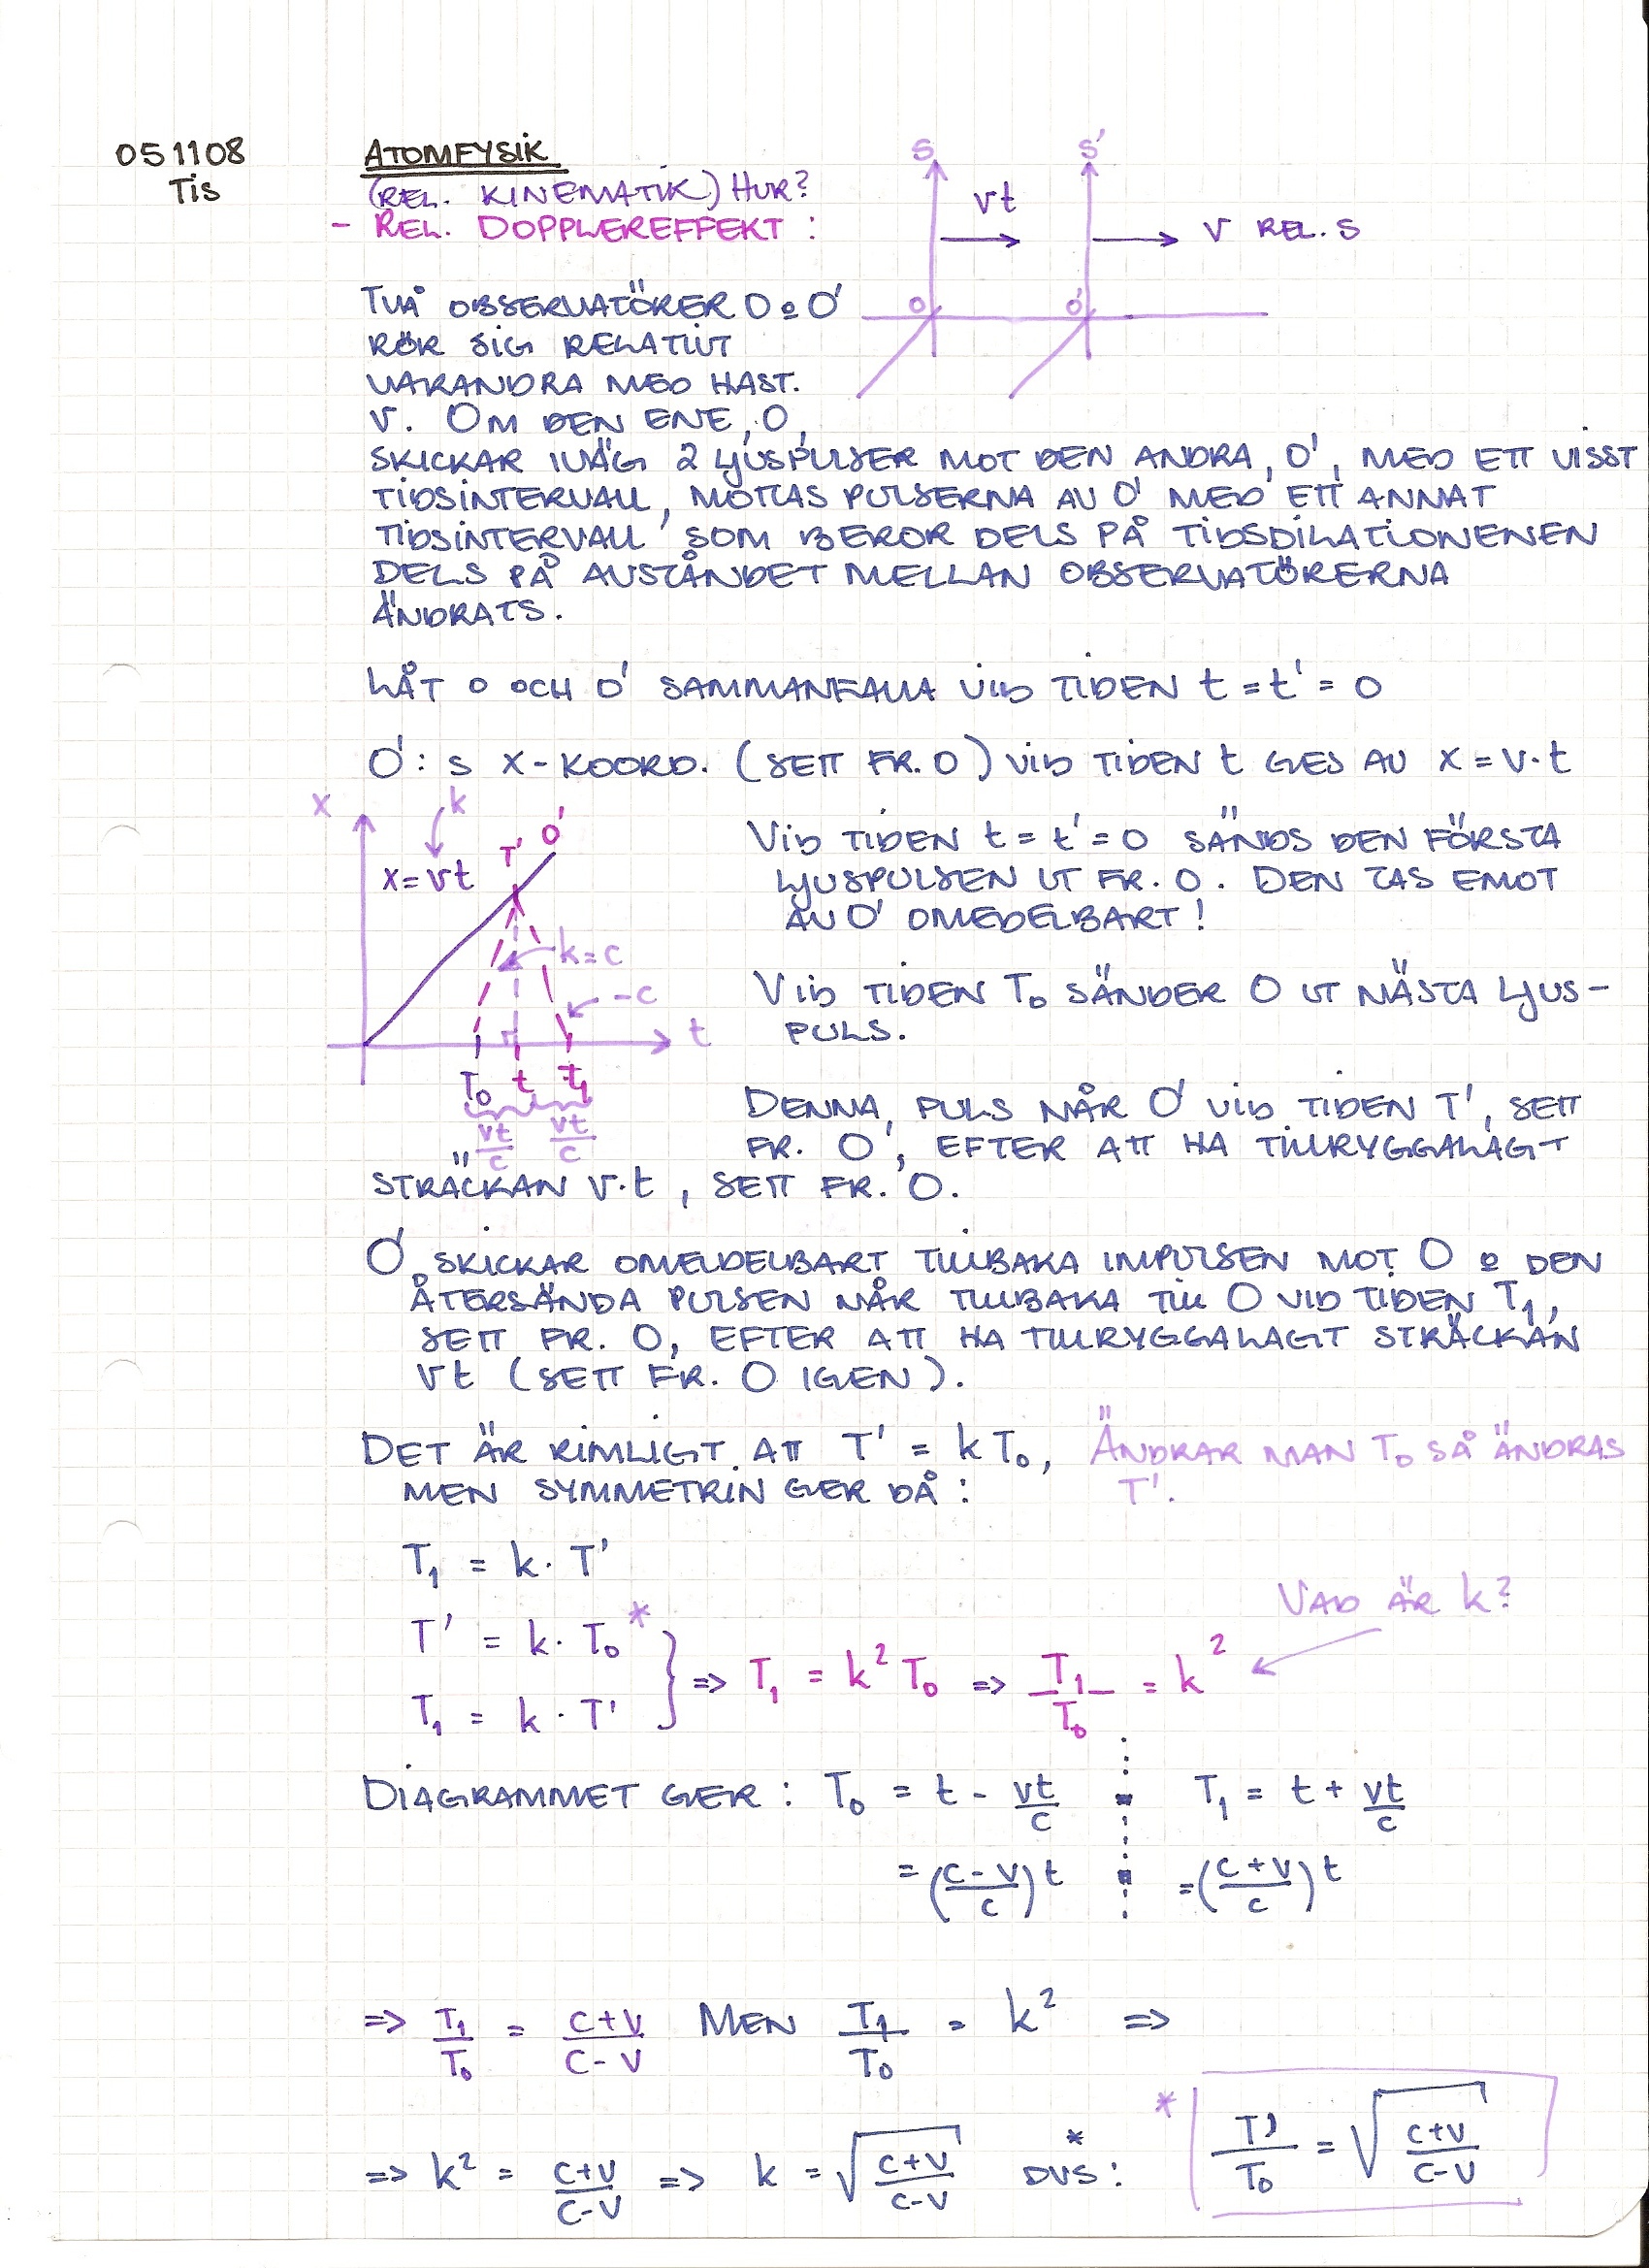 051108
Tis
ATOMFYSIK
(REL. KINEMATIK) HUR?
- REL. DOPPLEREFFEKT :
S
S'
vt
V REL. S
O
O'
TVÅ OBSERVATÖRER O o O'
RÖR SIG RELATIVT
VARANDRA MED HAST.
V. OM DEN ENE, O,
SKICKAR IVÄG 2 LJUSPULSER MOT DEN ANDRA, O', MED ETT VISST
TIDSINTERVALL, MOTTAS PULSERNA AV O' MED ETT ANNAT
TIDSINTERVALL SOM BEROR DELS PÅ TIDSDILATIONENEN
DELS PÅ AVSTÅNDET MELLAN OBSERVATÖRERNA
ÄNDRATS.
LÅT O OCH O' SAMMANFALLA VID TIDEN t = t' = 0
O': s X-KOORD. (SETT FR. O) VID TIDEN t GES AV X = V·t
X
k
X = vt
T'
O'
k = c
-c
t
T₀ t T₁
vt/c vt/c
VID TIDEN t = t' = 0 SÄNDS DEN FÖRSTA
LJUSPULSEN UT FR. O. DEN TAS EMOT
AV O' OMEDELBART!
VID TIDEN T₀ SÄNDER O UT NÄSTA LJUS-
PULS.
DENNA PULS NÅR O' VID TIDEN T', SETT
FR. O', EFTER ATT HA TILLRYGGALAGT
STRÄCKAN V·t, SETT FR. O.
O' SKICKAR OMEDELBART TILLBAKA IMPULSEN MOT O o DEN
ÅTERSÄNDA PULSEN NÅR TILLBAKA TILL O VID TIDEN T₁,
SETT FR. O, EFTER ATT HA TILLRYGGALAGT STRÄCKAN
Vt (SETT FR. O IGEN).
DET ÄR RIMLIGT ATT T' = kT₀, ÄNDRAR MAN T₀ SÅ ÄNDRAS
MEN SYMMETRIN GER DÅ : T'.
T₁ = k · T'
VAD ÄR k?
T' = k · T₀ *
T₁ = k · T' } => T₁ = k² T₀ => T₁/T₀ = k²
DIAGRAMMET GER : T₀ = t - vt/c T₁ = t + vt/c
= (c-v/c) t = (c+v/c) t
=> T₁/T₀ = c+v/c-v MEN T₁/T₀ = k² =>
=> k² = c+v/c-v => k = √(c+v/c-v) * DVS : * T'/T₀ = √(c+v/c-v)